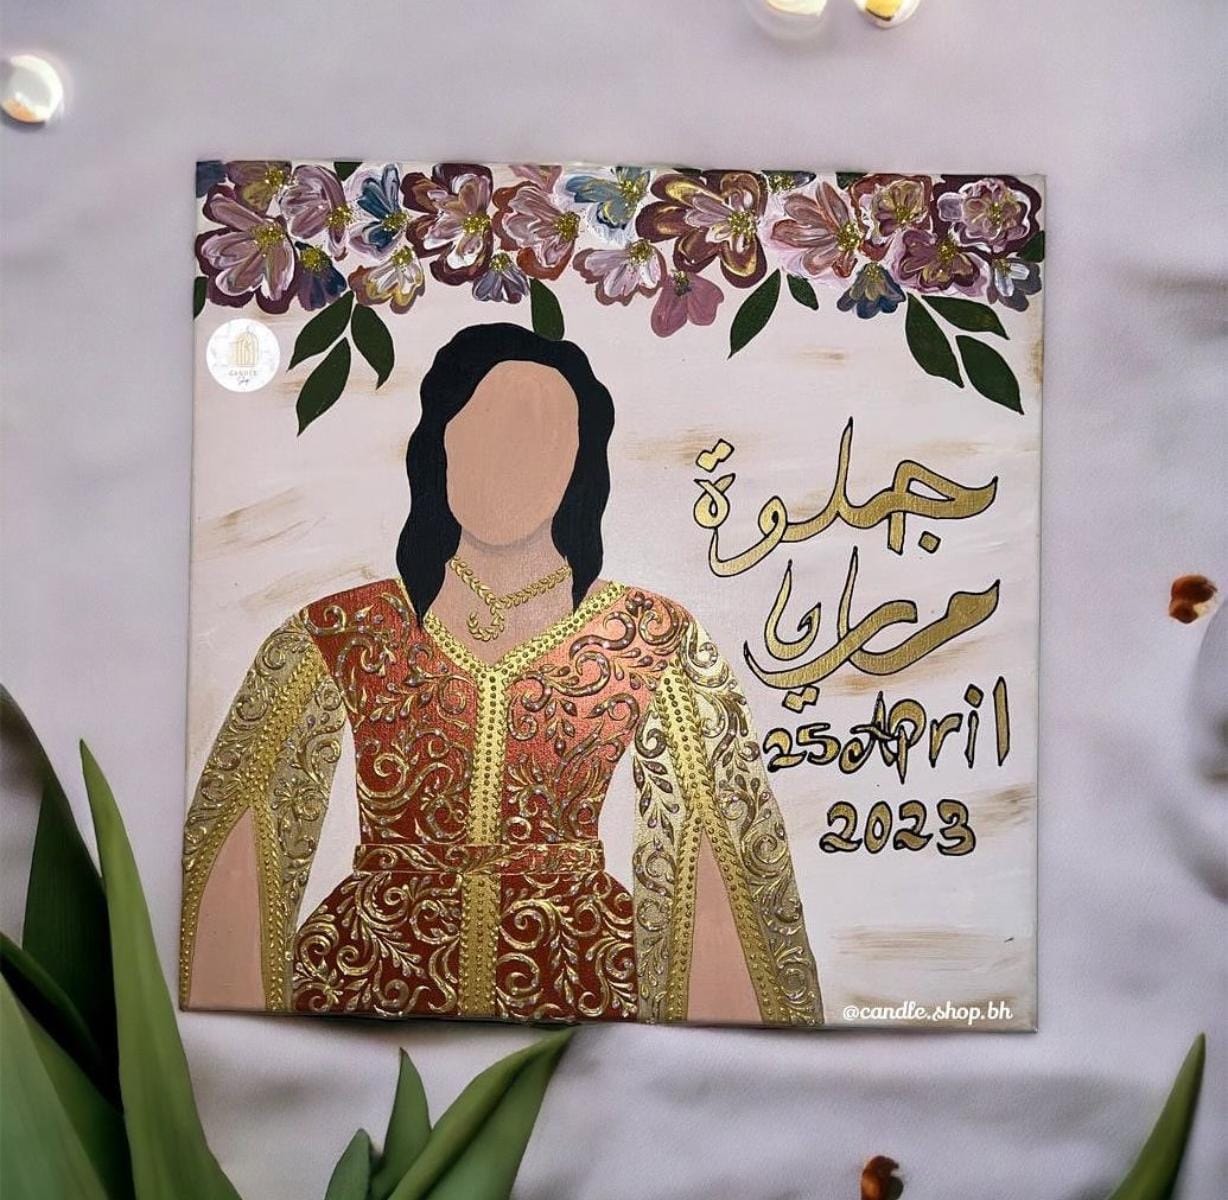 CANDLE
Shop
جلوة
مرايا
25 April
2023
@candle.shop.bh